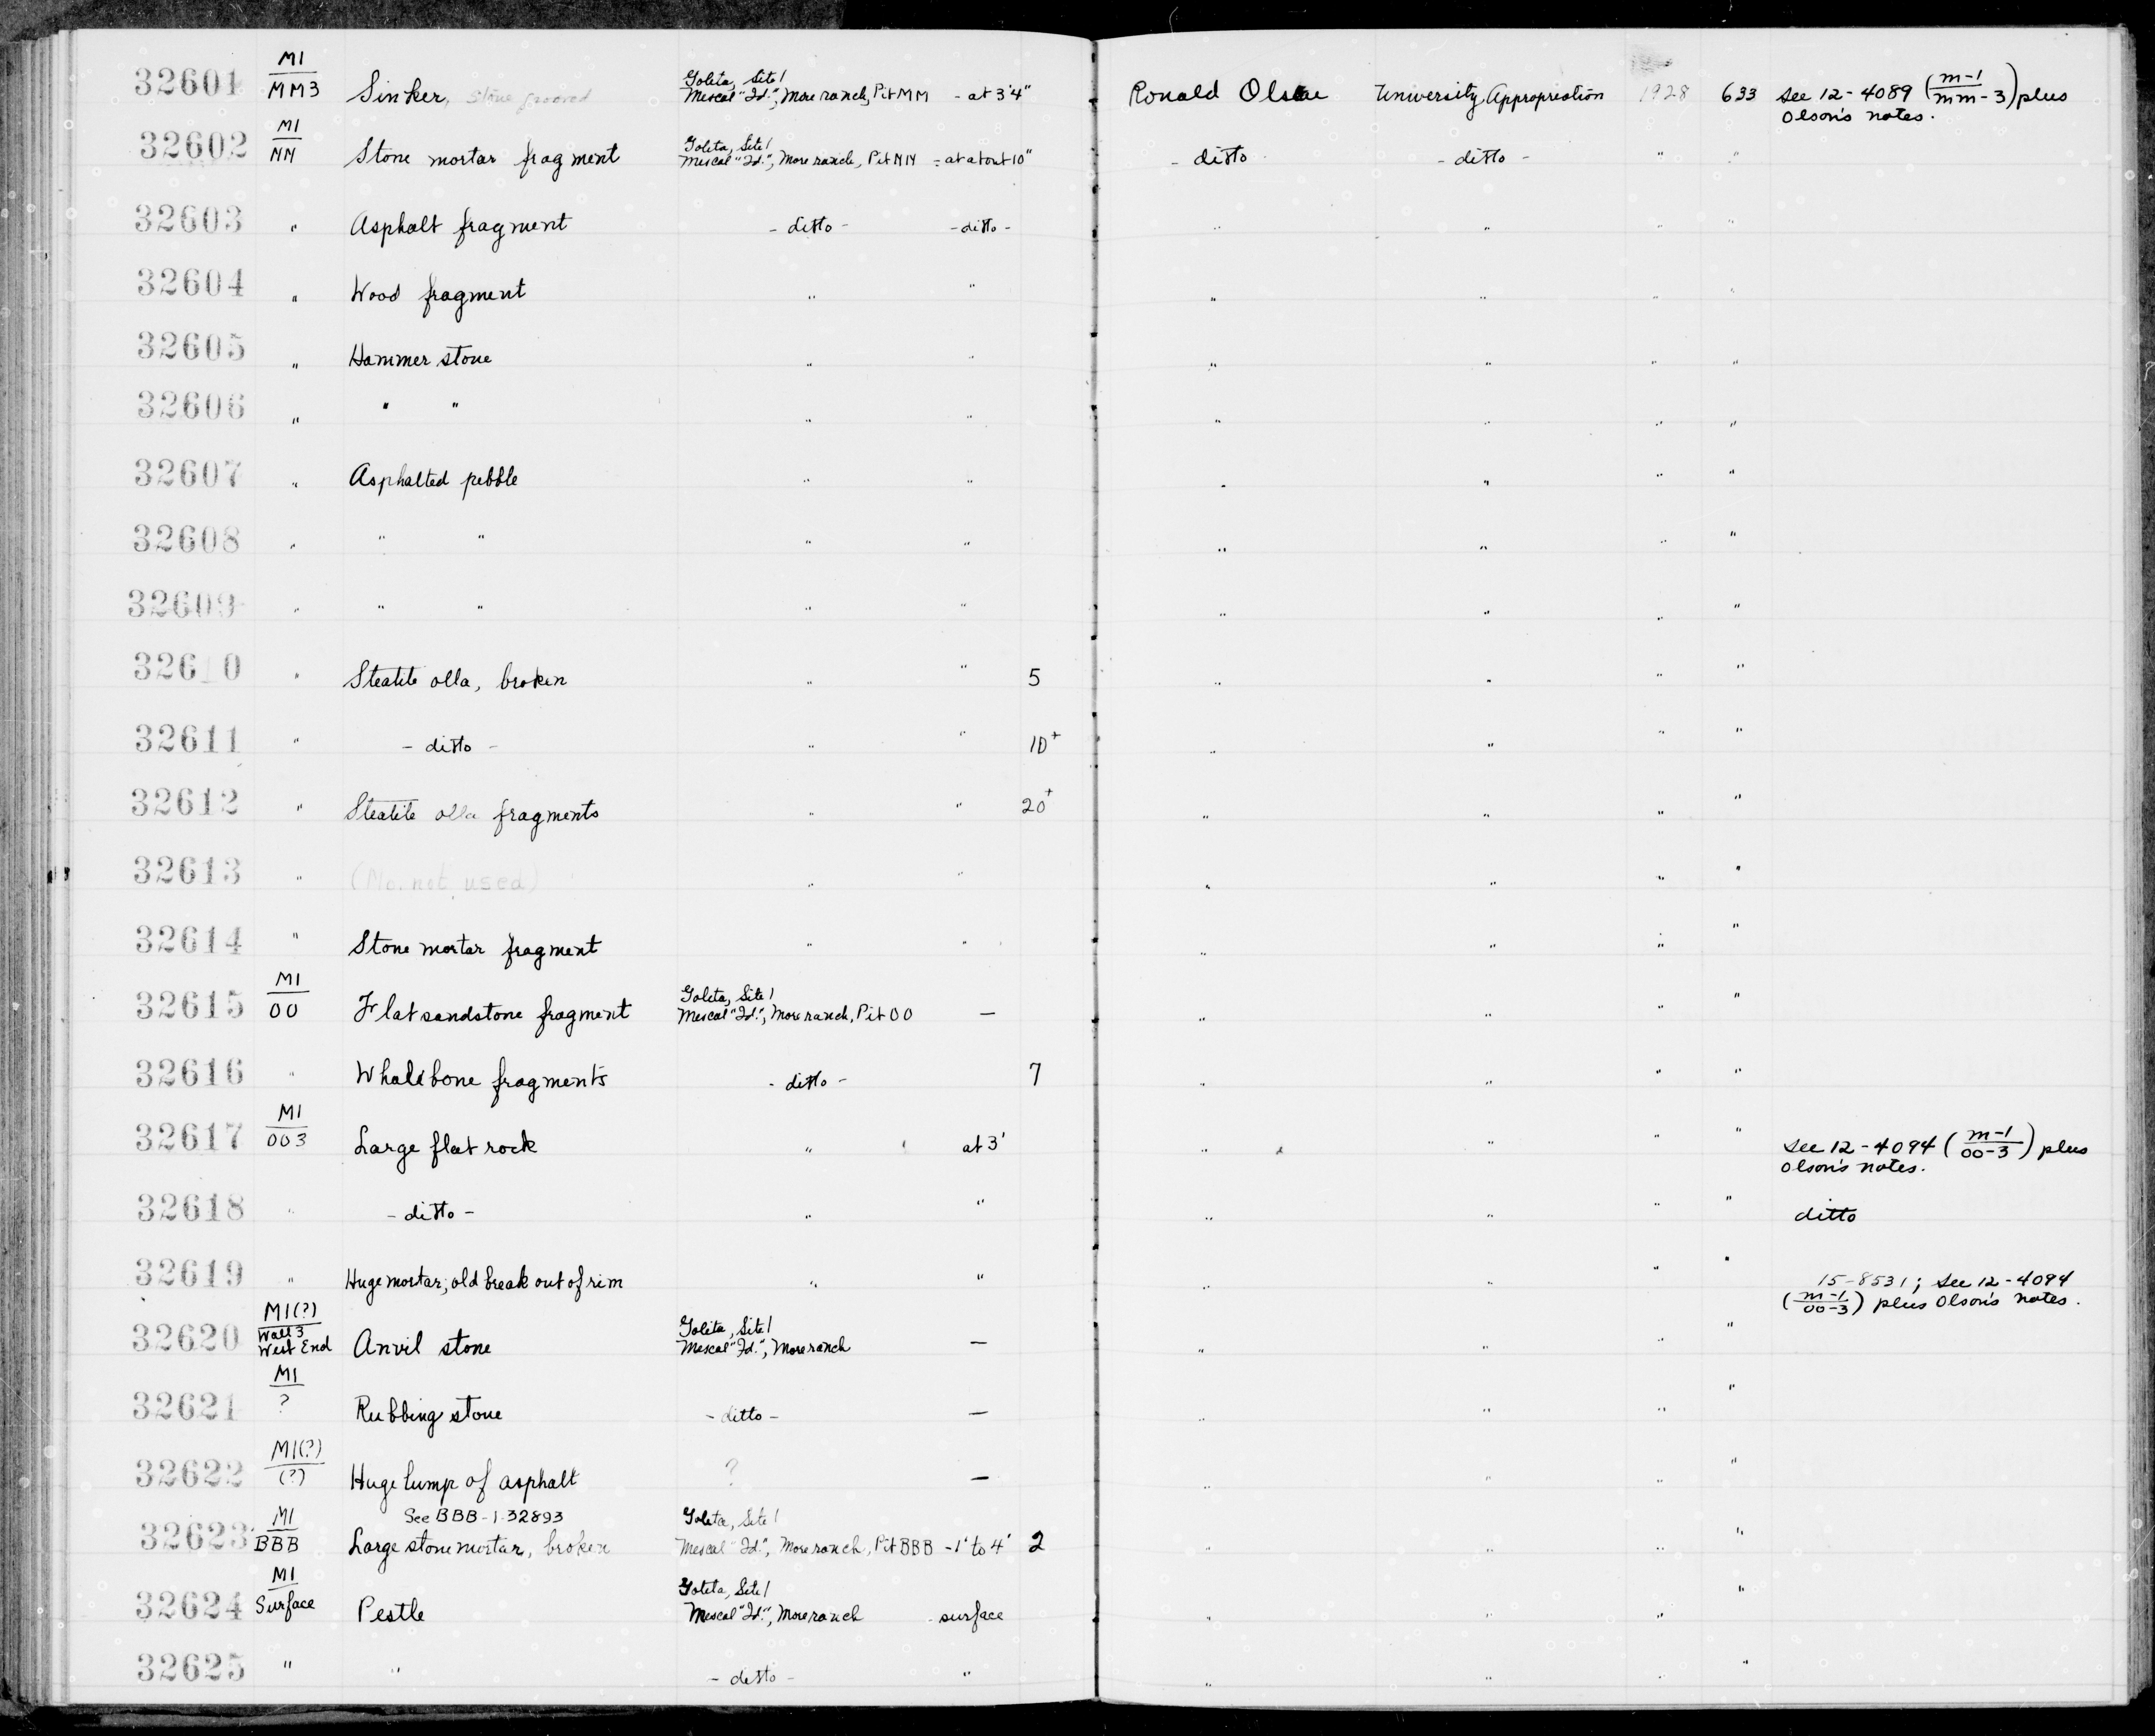 32601 M1/MM3 Sinker, stone grooved Goleta, Site 1 Mescal "Id.", More ranch, Pit MM - at 3'4" Ronald Olson University Appropriation 1928 633 See 12-4089 (m-1/mm-3) plus Olson's notes.
32602 M1/NN Stone mortar fragment Goleta, Site 1 Mescal "Id.", More ranch, Pit NN - at about 10" - ditto - ditto - " "
32603 " Asphalt fragment - ditto - - ditto - " " " "
32604 " Wood fragment " " " " " "
32605 " Hammer stone " " " " " "
32606 " " " " " " " " "
32607 " Asphalted pebble " " " " " "
32608 " " " " " " " " "
32609 " " " " " " " " "
32610 " Steatite olla, broken " " 5 " " " "
32611 " - ditto - " " 10+ " " " "
32612 " Steatite olla fragments " " 20+ " " " "
32613 " (No. not used) " " " " " "
32614 " Stone mortar fragment " " " " " "
32615 M1/OO Flat sandstone fragment Goleta, Site 1 Mescal "Id.", More ranch, Pit OO — " " " "
32616 " Whalebone fragments - ditto - 7 " " " "
32617 M1/OO3 Large flat rock " at 3' " " " " See 12-4094 (m-1/oo-3) plus Olson's notes.
32618 " - ditto - " " " " " " ditto
32619 " Huge mortar; old break out of rim " " " " " " 15-8531; see 12-4094 (m-1/oo-3) plus Olson's notes.
32620 M1(?)/Wall 3 West End Anvil stone Goleta, Site 1 Mescal "Id.", More ranch — " " " "
32621 M1/? Rubbing stone - ditto - — " " " "
32622 M1(?)/(?) Huge lump of asphalt ? — " " " "
32623 M1/BBB See BBB-1-32893 Large stone mortar, broken Goleta, Site 1 Mescal "Id.", More ranch, Pit BBB - 1' to 4' 2 " " " "
32624 M1/Surface Pestle Goleta, Site 1 Mescal "Id.", More ranch - surface " " " "
32625 " " - ditto - " " " " "